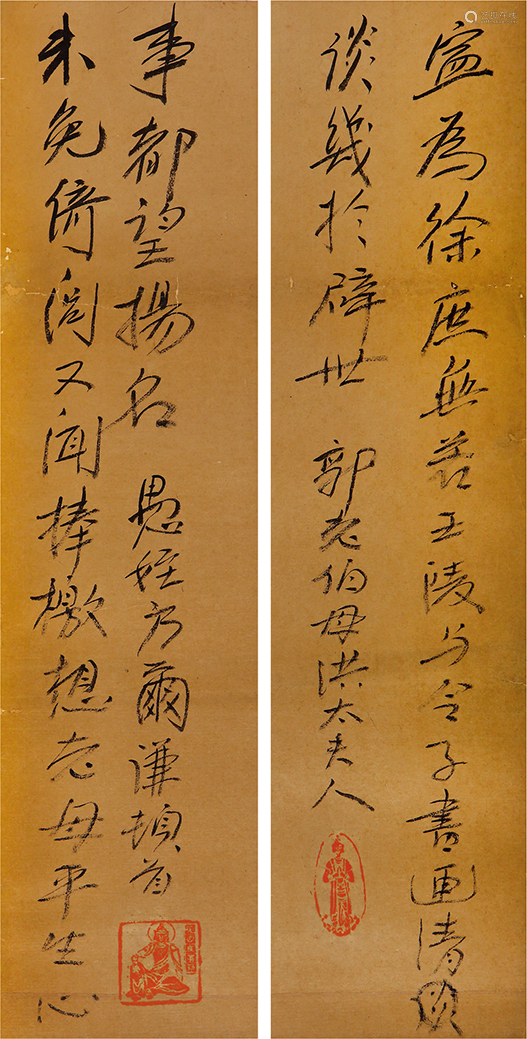 寍為徐庶無若王陵与令子書画清
談幾於辟世　郭老伯母洪太夫人
未免倚閭又聞捧檄想老母平生心
事都望揚名　愚姪方爾謙頓首